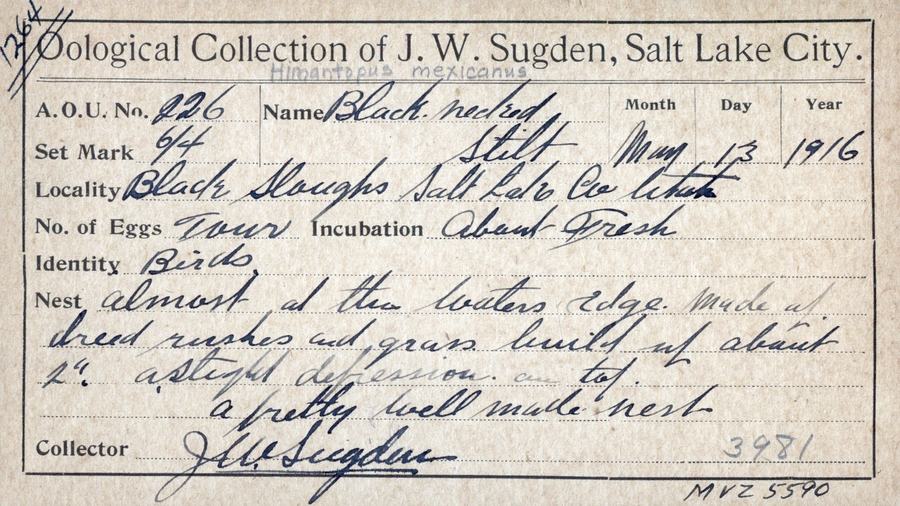 1264
Oological Collection of J. W. Sugden, Salt Lake City.
Himantopus mexicanus
A.O.U. No. 226 Name Black. necked Month Day Year
Set Mark 6/4 Stilt May 13 1916
Locality Black Sloughs Salt Lake Co Utah
No. of Eggs Four Incubation About Fresh
Identity Birds
Nest almost at the waters edge. made of
dreed rushes and grass build up about
2". a slight depression. on top.
a pretty well made nest
Collector J W. Sugden 3981
MVZ 5590